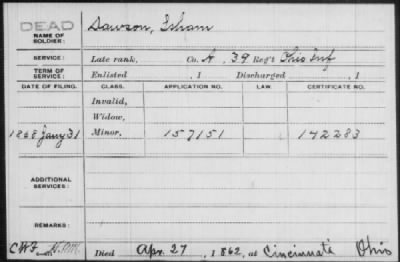 DEAD
NAME OF SOLDIER: Dawson, Isham
SERVICE: Late rank, Co. A, 39 Reg't Ohio Inf
TERM OF SERVICE: Enlisted , 1 Discharged , 1
DATE OF FILING. CLASS. APPLICATION NO. LAW. CERTIFICATE NO.
Invalid,
Widow,
1868 Jany 31 Minor, 157151 142283
ADDITIONAL SERVICES:
REMARKS:
Died Apr. 27, 1862, at Cincinnati Ohio